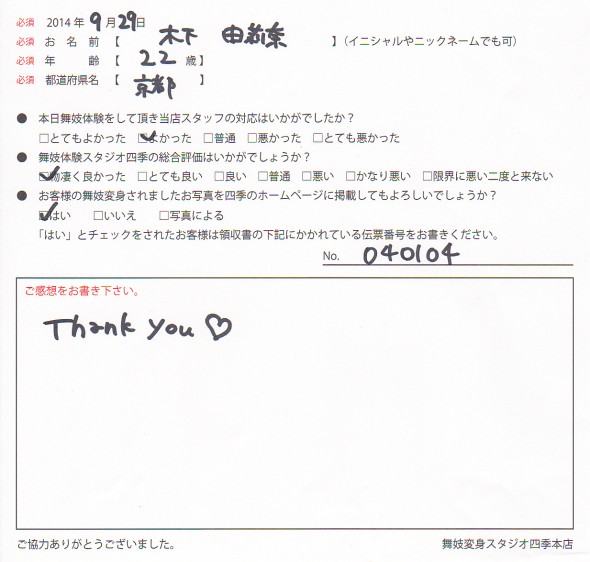 必須 2014年 9月29日
必須 お名前【 木下 由莉奈 】(イニシャルやニックネームでも可)
必須 年齢【 22 歳】
必須 都道府県名【 京都 】
● 本日舞妓体験をして頂き当店スタッフの対応はいかがでしたか?
□とてもよかった ☑よかった □普通 □悪かった □とても悪かった
● 舞妓体験スタジオ四季の総合評価はいかがでしょうか?
☑物凄く良かった □とても良い □良い □普通 □悪い □かなり悪い □限界に悪い二度と来ない
● お客様の舞妓変身されましたお写真を四季のホームページに掲載してもよろしいでしょうか?
☑はい □いいえ □写真による
「はい」とチェックをされたお客様は領収書の下記にかかれている伝票番号をお書きください。
No. 040104
ご感想をお書き下さい。
Thank you ♡
ご協力ありがとうございました。 舞妓変身スタジオ四季本店